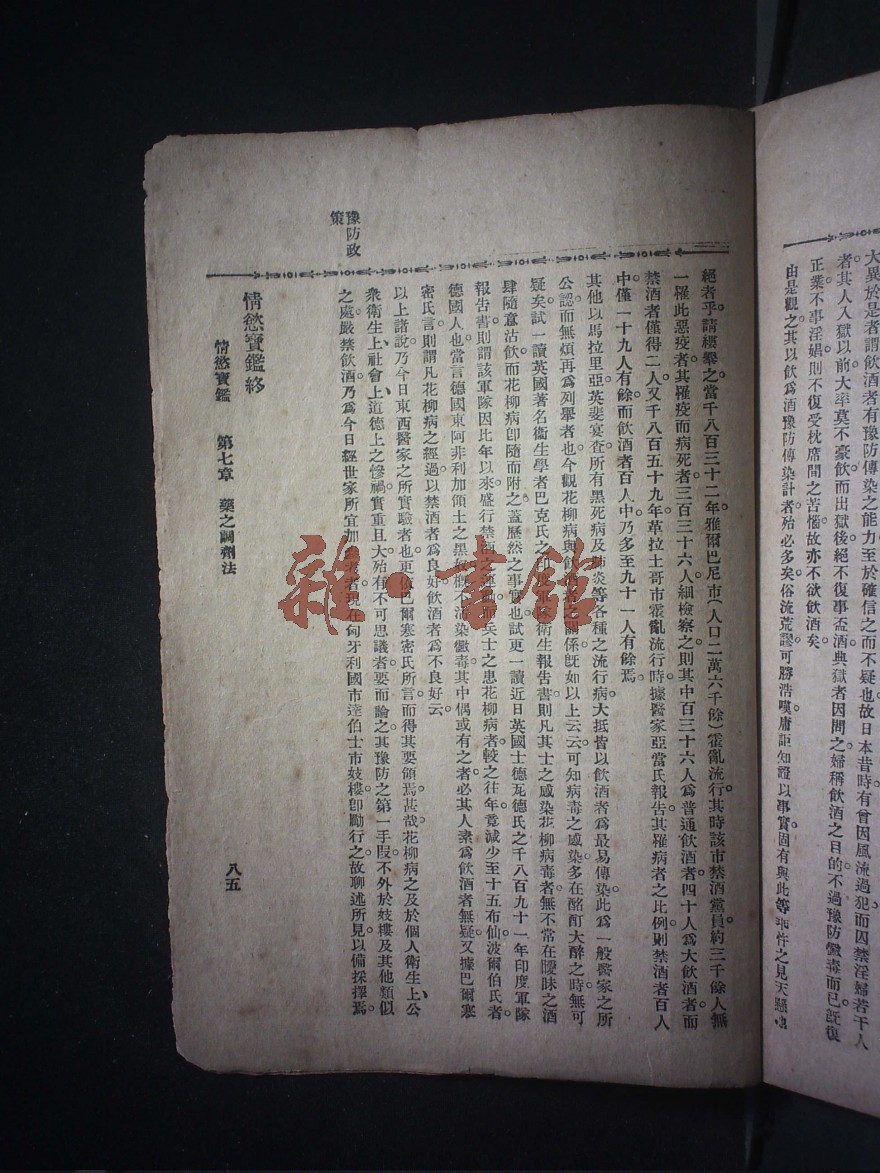 大異於是者謂飲酒者有豫防傳染之能力至於確信之而不疑也故日本昔時有曾因風流過犯而囚禁淫婦若干人
者其人入獄以前大率莫不豪飲而出獄後絕不復事盃酒典獄者因問之婦稱飲酒之目的不過豫防黴毒而已旣復
正業不事淫媟則不復受枕席間之苦惱故亦不欲飲酒矣
由是觀之其以飲爲酒豫防傳染計者殆必多矣俗流荒謬可勝浩嘆庸詎知證以事實固有與此等
件之見天
豫防政策
絕者乎請縷舉之當千八百三十二年雅爾巴尼市(人口二萬六千餘)霍亂流行其時該市禁酒黨員約三千餘人無
一罹此惡疫者其罹疫而病死者三百三十六人細檢察之則其中百三十六人爲普通飲酒者四十人爲大飲酒者而
禁酒者僅得二人又千八百五十九年革拉士哥市霍亂流行時據醫家亞當氏報告其罹病者之比例則禁酒者百人
中僅一十九人有餘而飲酒者百人中乃多至九十一人有餘焉
其他以馬拉里亞英斐宴查所有黑死病及肺炎等各種之流行病大抵皆以飲酒者爲最易傳染此爲一般醫家之所
公認而無煩再爲列舉者也今觀花柳病與飲酒者之關係旣如以上云云可知病毒之感染多在酩酊大醉之時無可
疑矣試一讀英國著名衞生學者巴克氏之印度軍隊衞生報告書則凡其士之感染花柳病毒者無不常在曖昧之酒
肆隨意沽飲而花柳病卽隨而附之蓋歷然之事實也試更一讀近日英國士德瓦德氏之千八百九十一年印度軍隊
報告書則謂該軍隊因比年以來盛行禁酒之運動而兵士之患花柳病者較之往年竟減少至十五布仙波爾伯氏者
德國人也嘗言德國東阿非利加領土之黑奴槪不沾染黴毒其中偶或有之者必其人素爲飲酒者無疑又據巴爾塞
密氏言則謂凡花柳病之經過以禁酒者爲良好飲酒者爲不良好云
以上諸說乃今日東西醫家之所實驗者也更依巴爾塞密氏所言而得其要領焉甚哉花柳病之及於個人衞生上、公
衆衞生上、社會上、道德上之慘禍實重且大殆有不可思議者要而論之其豫防之第一手叚不外於妓樓及其他類似
之處嚴禁飲酒乃爲今日經世家所宜加意者現在匈牙利國市達伯士市妓樓卽勵行之故聊述所見以備採擇焉
情慾寶鑑終
情慾寶鑑 第七章 藥之調劑法
八五
雜·書館